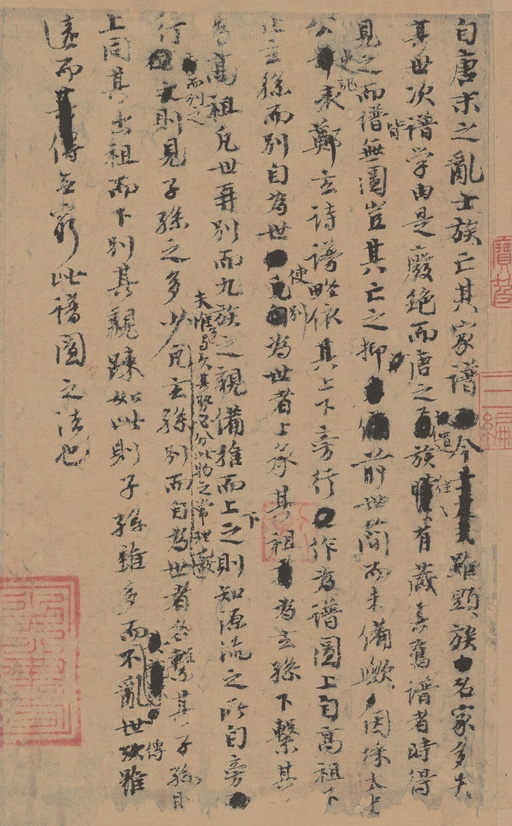 自唐末之亂士族亡其家譜今雖顯族名家多失
其世次譜學由是廢絕而唐之遺族往往有藏其舊譜者時得
見之而譜皆無圖豈其亡之抑前世簡而未備歟因採太史
公史記表鄭玄詩譜略依其上下旁行作為譜圖上自高祖下
止玄孫而別自為世使別為世者上承其祖為玄孫下繫其
為高祖凡世再別而九族之親備推而上下之則知源流之所自旁
行而列之則見子孫之多少夫惟多與久其勢必分此物之常理也凡玄孫別而自為世者各繫其子孫則
上同其出祖而下別其親疎如此則子孫雖多而不亂世傳雖
遠而無窮此譜圖之法也